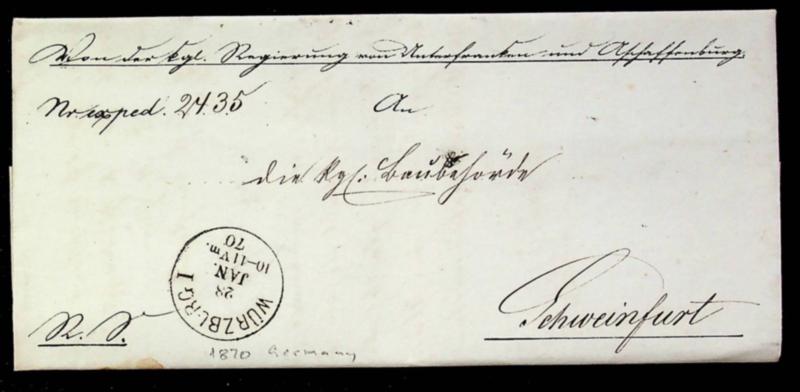 Von der kgl. Regierung von Unterfranken und Aschaffenburg.
Nr. exped. 2435 An
die kgl. Baubehörde
WÜRZBURG I
28
JAN.
10-11 Vm.
70
Schweinfurt
R. S.
1870 Germany